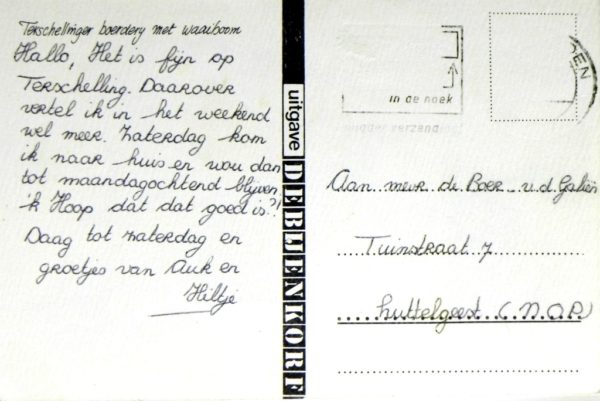 Terschellinger boerdery met waaiboom
Hallo, Het is fijn op
Terschelling. Daarover
vertel ik in het weekend
wel meer. Zaterdag kom
ik naar huis en wou dan
tot maandagochtend blijven
ik Hoop dat dat goed is?!
Daag tot zaterdag en
groetjes van Auk en
Hiltje
uitgave DE BIJENKORF
in de hoek
zonder verzend
EN
Aan mevr de Boer v.d. Galiën
Tuinstraat 7
Luttelgeest (N.O.P.)